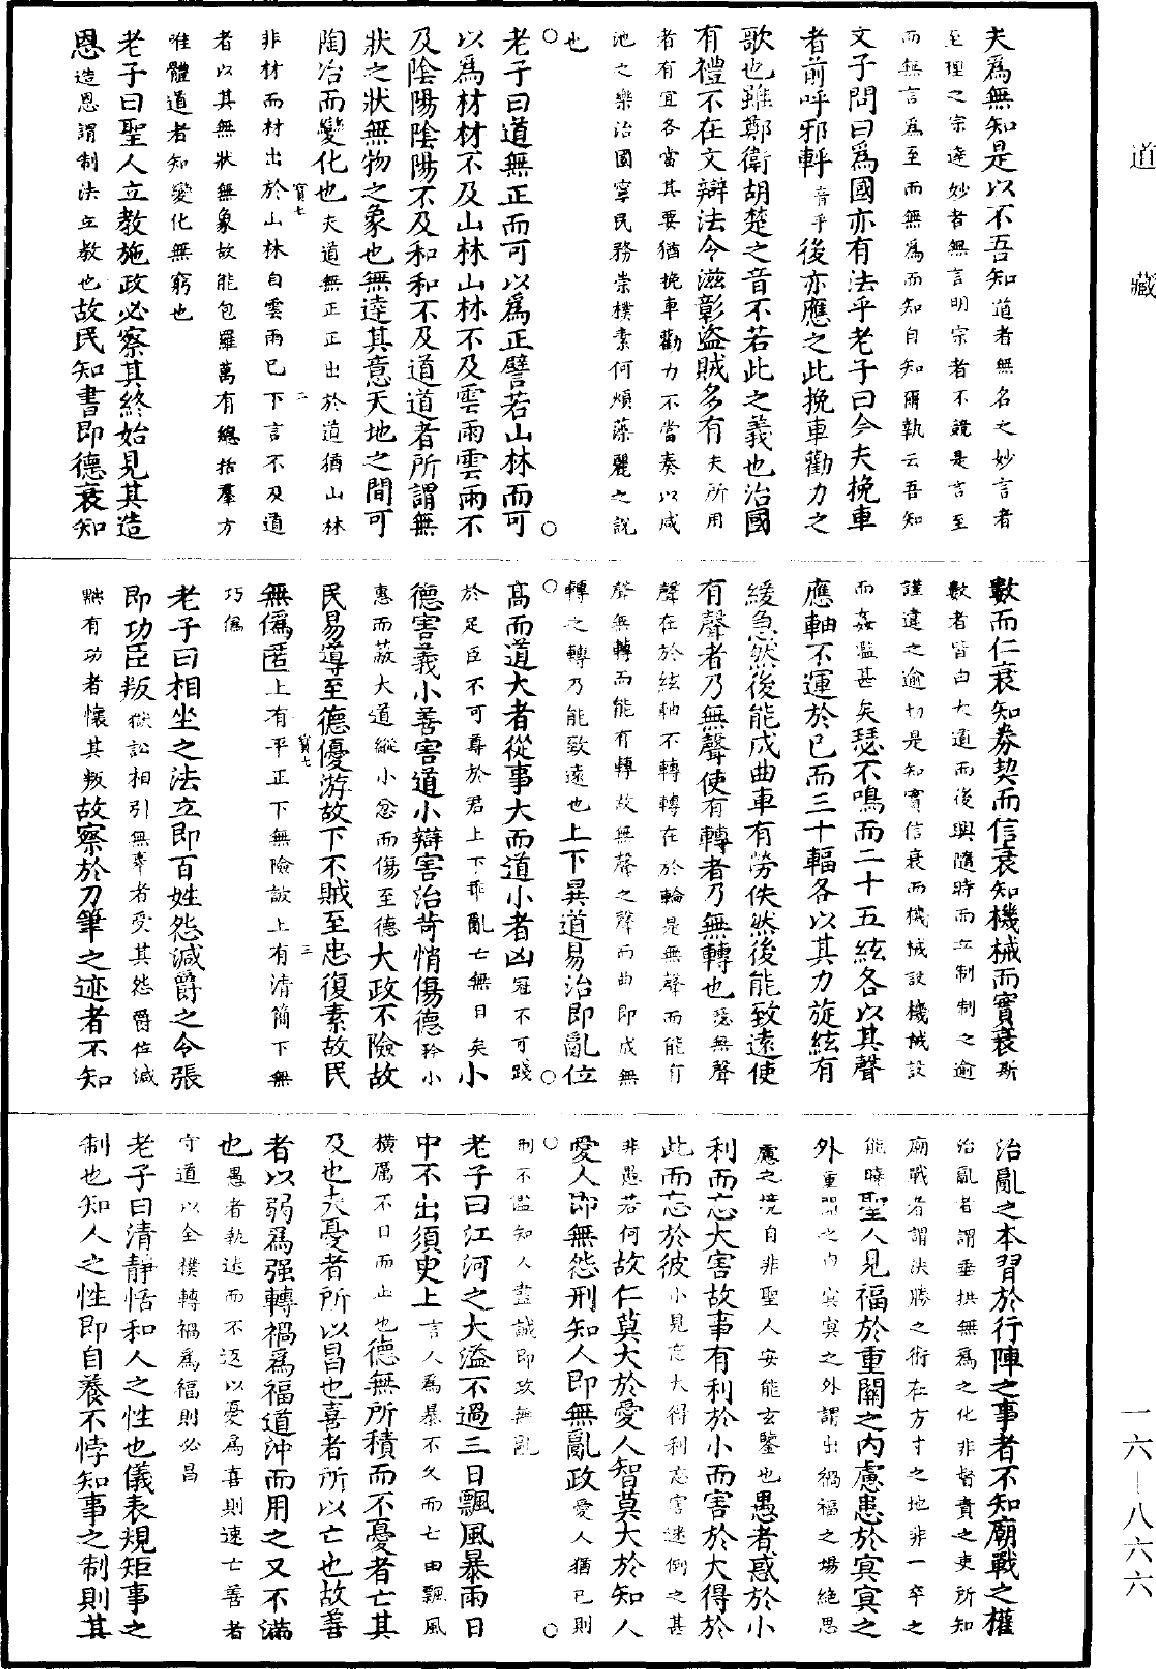 道藏
夫爲無知是以不吾知道者無名之妙言者
至理之宗達妙者無言明宗者不競是言至
而無言爲至而無爲而知自知爾執云吾知
文子問曰爲國亦有法乎老子曰今夫挽車
者前呼邪軤音乎後亦應之此挽車勸力之
歌也雖鄭衛胡楚之音不若此之義也治國
有禮不在文辯法令滋彰盜賊多有夫所用
者有宜各當其要猶挽車勸力不當奏以咸
池之樂治國寧民務崇樸素何煩藻麗之說
也
老子曰道無正而可以爲正譬若山林而可
以爲材材不及山林山林不及雲雨雲雨不
及陰陽陰陽不及和和不及道道者所謂無
狀之狀無物之象也無達其意天地之間可
陶冶而變化也夫道無正正出於道猶山林
寶七 二
非材而材出於山林自雲雨已下言不及道
者以其無狀無象故能包羅萬有總括羣方
唯體道者知變化無窮也
老子曰聖人立教施政必察其終始見其造
恩造恩謂制法立教也故民知書即德衰知
數而仁衰知券契而信衰知機械而實衰斯
數者皆白大道而後興隨時而立制制之逾
謹違之逾切是知實信衰而機械設機械設
而姦濫甚矣瑟不鳴而二十五絃各以其聲
應軸不運於已而三十輻各以其力旋絃有
緩急然後能成曲車有勞佚然後能致遠使
有聲者乃無聲使有轉者乃無轉也瑟無聲
聲在於絃軸不轉轉在於輪是無聲而能有
聲無轉而能有轉故無聲之聲而曲即成無
轉之轉乃能致遠也上下異道易治即亂位
高而道大者從事大而道小者凶冠不可踐
於足臣不可尊於君上下乖亂亡無日矣小
德害義小善害道小辯害治苛悄傷德矜小
惠而蔽大道縱小忿而傷至德大政不險故
民易導至德優游故下不賊至忠復素故民
寶七 三
無僞匿上有平正下無險詖上有清簡下無
巧僞
老子曰相坐之法立即百姓怨減爵之令張
即功臣叛獄訟相引無辜者受其怨爵位減
黜有功者懷其叛故察於刀筆之迹者不知
治亂之本習於行陣之事者不知廟戰之權
治亂者謂垂拱無爲之化非督責之吏所知
廟戰者謂決勝之術在方寸之地非一卒之
能曉聖人見福於重關之內慮患於冥冥之
外重關之内冥冥之外謂出禍福之場絶思
慮之境自非聖人安能玄鑒也愚者惑於小
利而忘大害故事有利於小而害於大得於
此而忘於彼小見忘大得利忘害迷倒之甚
非愚若何故仁莫大於愛人智莫大於知人
愛人即無怨刑知人即無亂政愛人猶已則
刑不濫知人盡誠即政無亂
老子曰江河之大溢不過三日飄風暴雨日
中不出須臾上言人爲暴不久而亡由飄風
橫厲不日而止也德無所積而不憂者亡其
及也夫憂者所以昌也喜者所以亡也故善
者以弱爲强轉禍爲福道沖而用之又不滿
也愚者執迷而不返以憂爲喜則速亡善者
守道以全樸轉禍爲福則必昌
老子曰清靜恬和人之性也儀表規矩事之
制也知人之性即自養不悖知事之制則其
一六—八六六